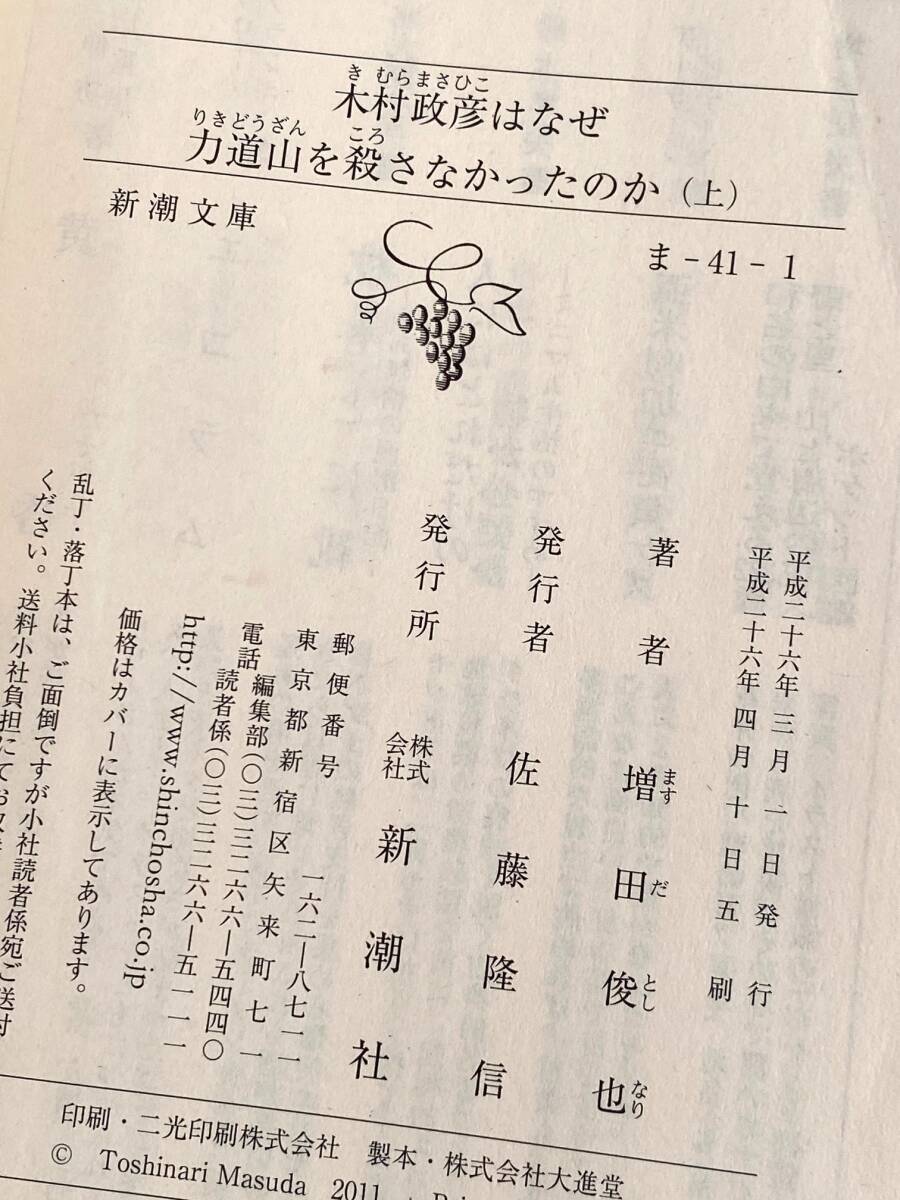 木村政彦はなぜ
力道山を殺さなかったのか（上）
新潮文庫
ま-41-1
平成二十六年三月一日発行
平成二十六年四月十日五刷
著者 増田俊也
発行者 佐藤隆信
発行所 株式会社 新潮社
郵便番号 一六二―八七一一
東京都新宿区矢来町七一
電話 編集部(〇三)三二六六―五四四〇
読者係(〇三)三二六六―五一一一
http://www.shinchosha.co.jp
価格はカバーに表示してあります。
乱丁・落丁本は、ご面倒ですが小社読者係宛ご送付
ください。送料小社負担にてお
印刷・二光印刷株式会社 製本・株式会社大進堂
© Toshinari Masuda 2011